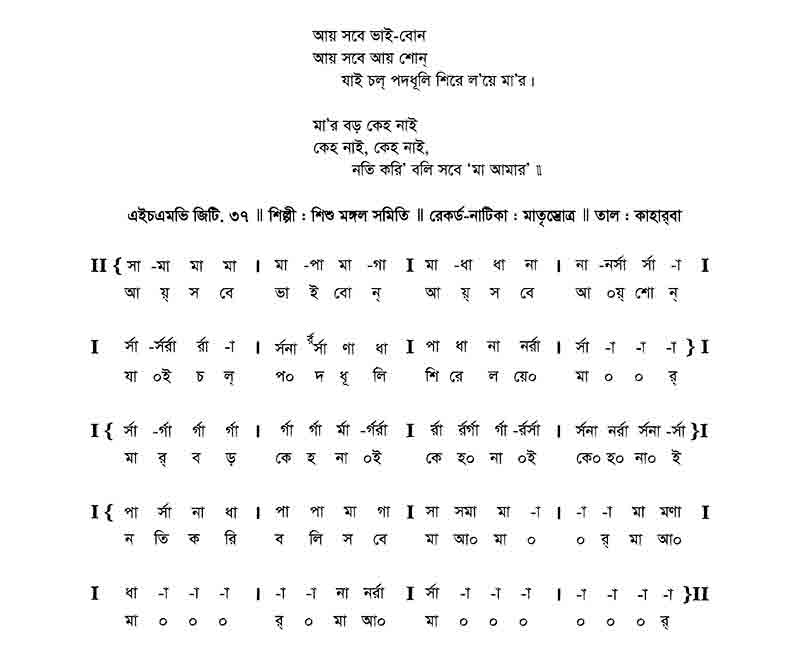 আয় সবে ভাই-বোন
আয় সবে আয় শোন্
যাই চল্ পদধূলি শিরে ল'য়ে মা'র।
মা'র বড় কেহ নাই
কেহ নাই, কেহ নাই,
নতি করি' বলি সবে 'মা আমার'॥
এইচএমভি জিটি. ৩৭ ॥ শিল্পী : শিশু মঙ্গল সমিতি ॥ রেকর্ড-নাটিকা : মাতৃস্তোত্র ॥ তাল : কাহার্‌বা
II { সা -মা মা মা । মা -পা মা -গা I মা -ধা ধা না । না -নর্সা র্সা -া I
আ য়্ স বে ভা ই বো ন্ আ য়্ স বে আ ০য়্ শো ন্
I র্সা -র্সর্রা র্রা -া । র্সনা র্রর্সা ণা ধা I পা ধা না নর্রা । র্সা -া -া -া } I
যা ০ই চ ল্ প০ দ ধূ লি শি রে ল য়ে০ মা ০ ০ র্
I { র্সা -র্গা র্গা র্গা । র্গা র্গা র্মা -র্গর্রা I র্রা র্রর্গা র্গা -র্রর্সা । র্সনা নর্রা র্সনা -র্সা }I
মা র্ ব ড় কে হ না ০ই কে হ০ না ০ই কে০ হ০ না০ ই
I { পা র্সা না ধা । পা পা মা গা I সা সমা মা -া । -া -া মা মণা I
ন তি ক রি ব লি স বে মা আ০ মা ০ ০ র্ মা আ০
I ধা -া -া -া । -া -া না নর্রা I র্সা -া -া -া । -া -া -া -া }II
মা ০ ০ ০ র্ ০ মা আ০ মা ০ ০ ০ ০ ০ ০ র্